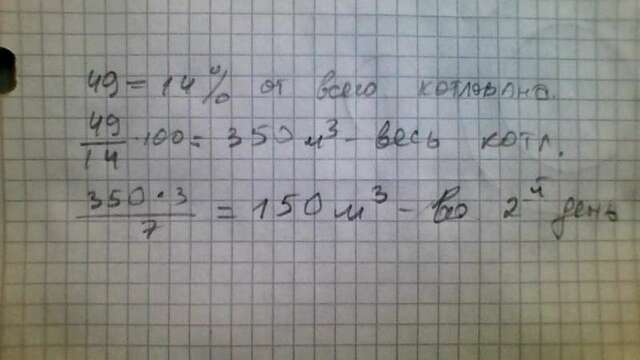 49 = 14% от всего котлована.
49/14 · 100 = 350 м³ - весь котл.
350 · 3/7 = 150 м³ - во 2-й день